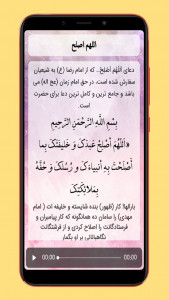 اللهم اصلح
دعای اَللّهُمَ اَصْلِحْ.. که از امام رضا (ع) به شیعیان
سفارش شده است، در حق امام زمان (عج اله) می
باشد و جامع ترین و کامل ترین دعا برای حضرت
است.
بِسْمِ اللَّهِ الرَّحْمَنِ الرَّحِيمِ
«اَللّهُمَّ أَصْلِحْ عَبْدَکَ وَ خَلیفَتَکَ بِما
أَصْلَحْتَ بِهِ أَنْبِیاءَکَ وَ رُسُلَکَ وَ حُفَّهُ
بِمَلائِکَتِکَ
بارالها! کار (ظهور) بنده شایسته و خلیفه ات ( امام
مهدی) را سامان ده همانگونه که کار پیامبران و
فرستادگانت را اصلاح کردی و از فرشتگانت
نگاهبانانی بر او بگمار
00:00
00:00